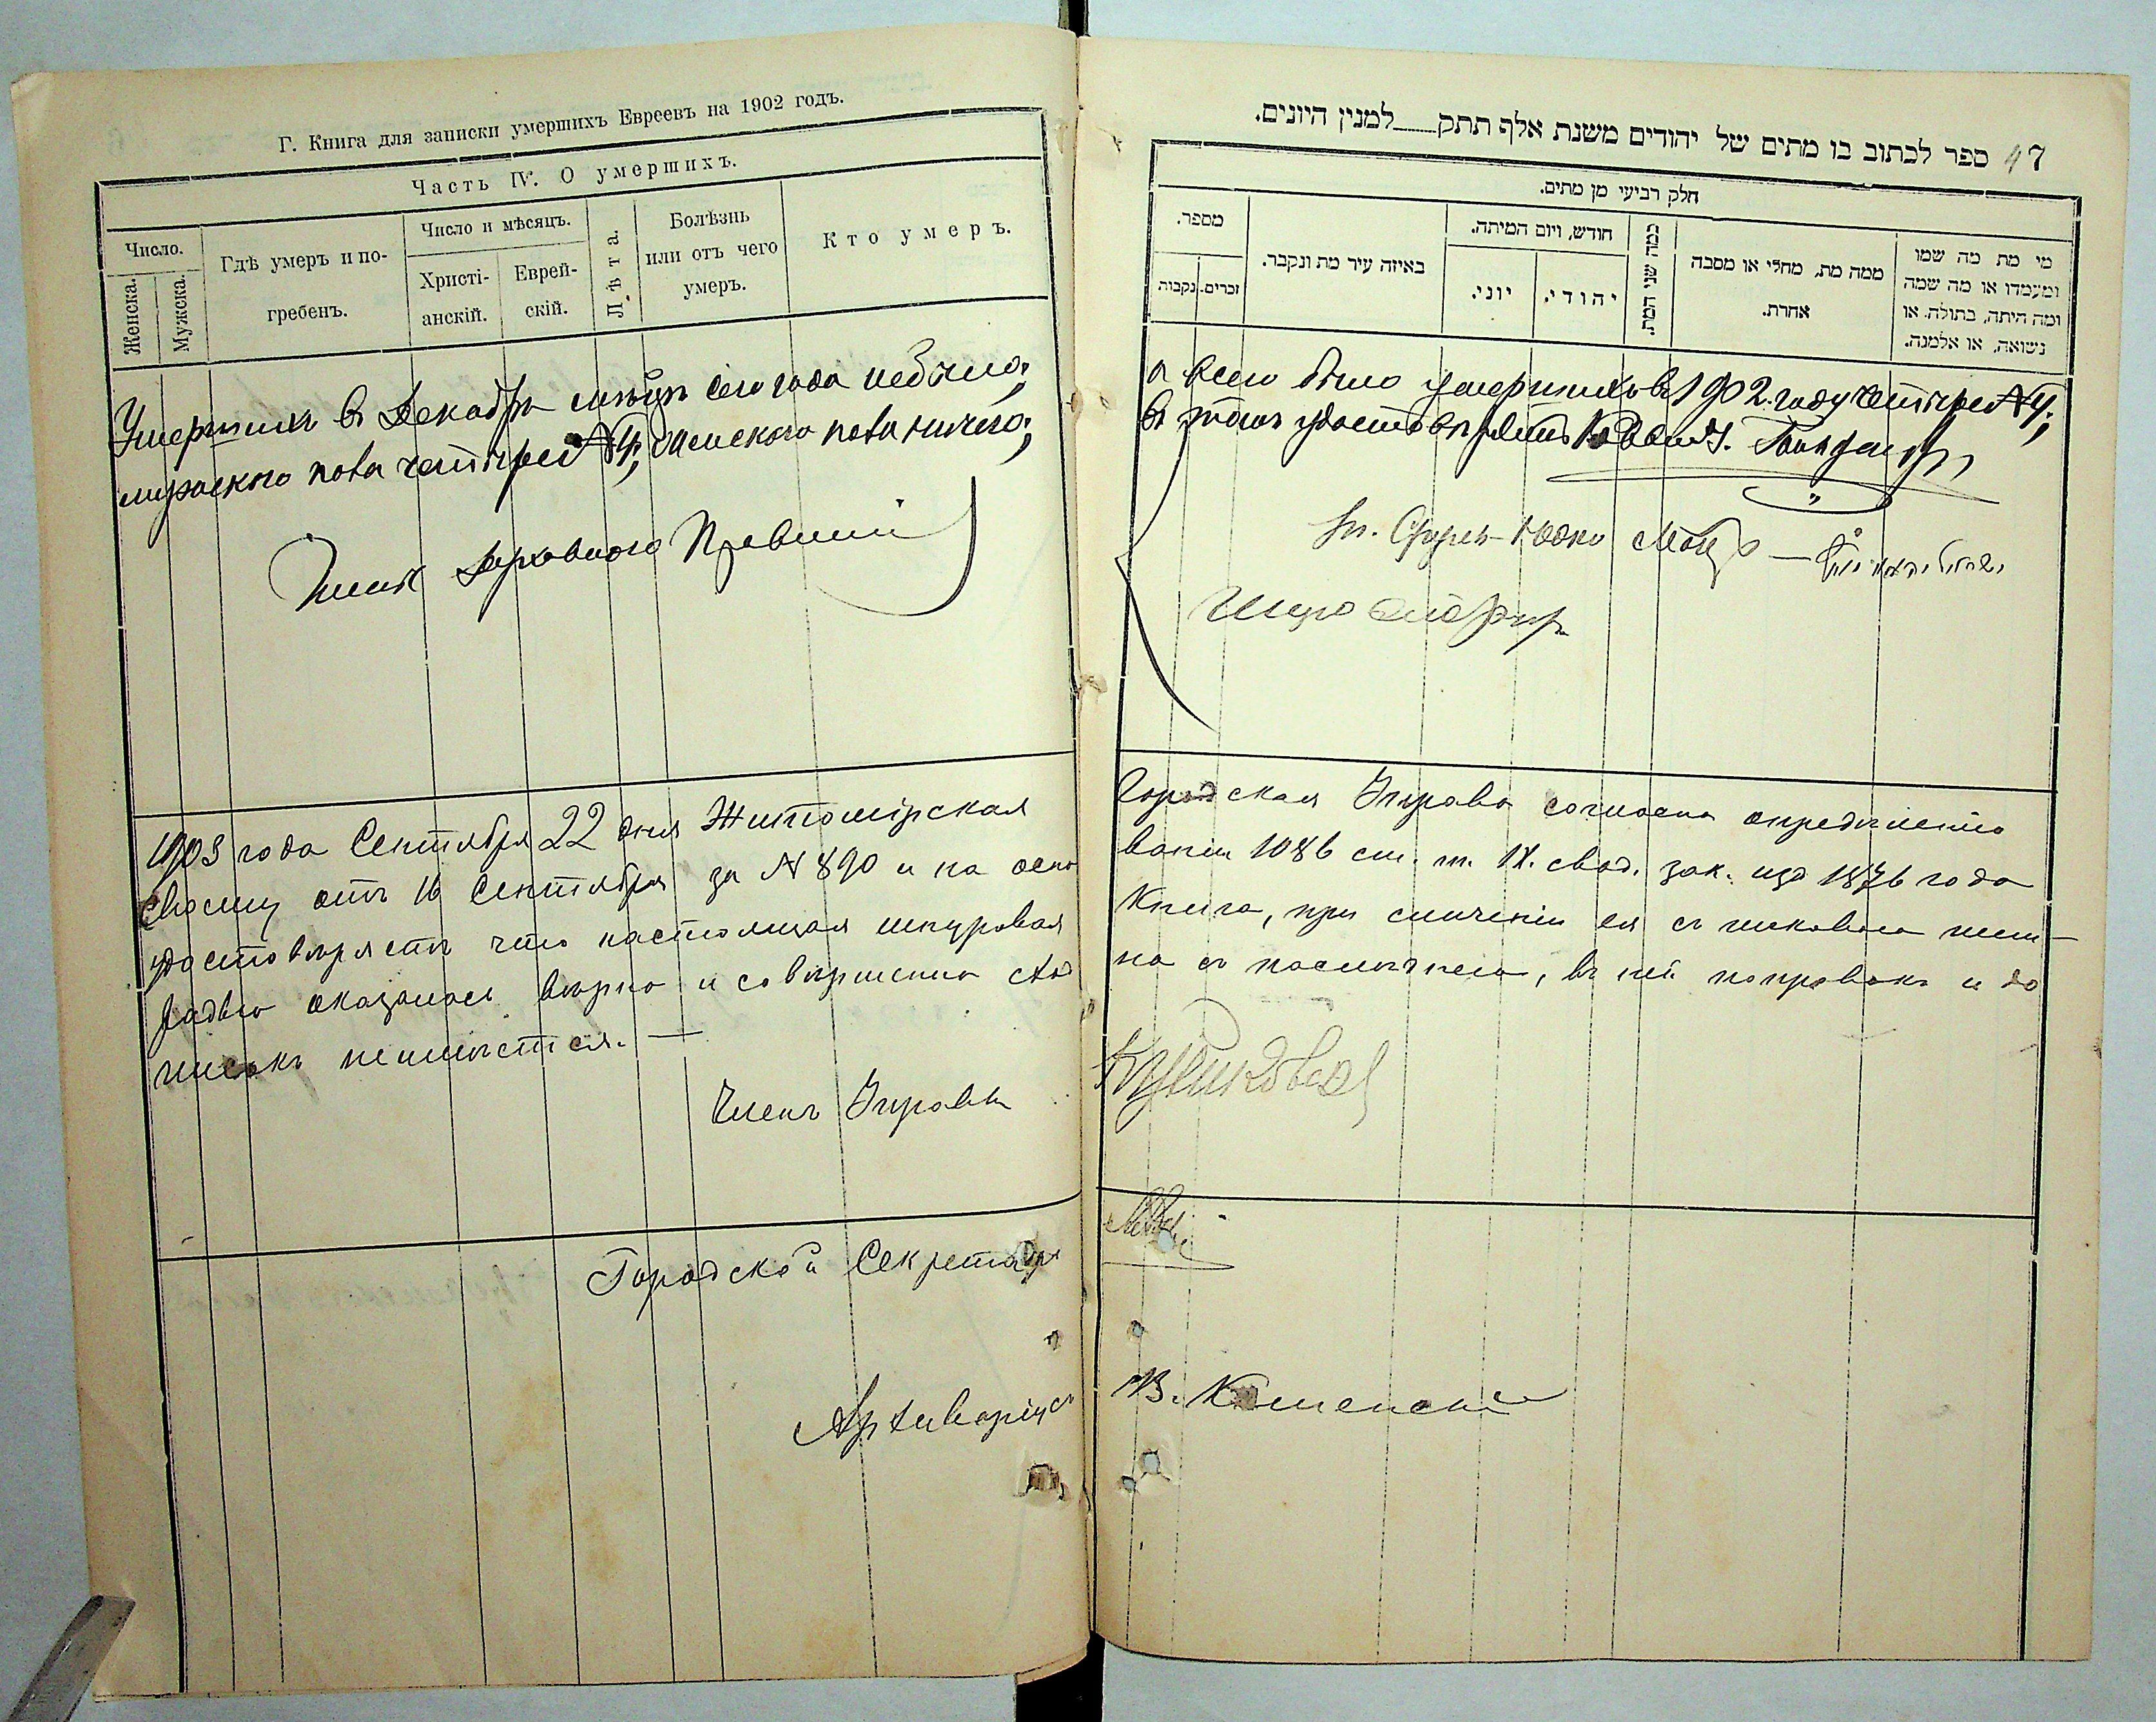 Г. Книга для записки умершихъ Евреевъ на 1902 годъ.
Часть IV. О умершихъ.
Число.
Женска.
Мужска.
Гдѣ умеръ и по-
гребенъ.
Число и мѣсяцъ.
Христі-
анскій.
Еврей-
скій.
Лѣта.
Болѣзнь
или отъ чего
умеръ.
Кто умеръ.
Умершихъ въ Декабрѣ сего года небыло;
мужского пола четыре №4; женского пола ничего;
Членъ Духовного Правленія
1903 года Сентября 22 дня Житомірская
своему отъ 16 Сентября за № 890 и на осно
удостовѣряетъ что настоящая шнуровая
радью оказалась вѣрно и совершенно сход
писокъ неимѣется. —
Членъ Управы
Городской Секретарь
Архиваріусъ
47
ספר לכתוב בו מתים של יהודים משנת אלף תתק למנין היונים.
חלק רביעי מן מתים.
מספר.
זכרים.
נקבות
באיזה עיר מת ונקבר.
חודש, ויום המיתה.
יוני.
יהודי.
כמה שני המת.
ממה מת, מחלי או מסבה
אחרת.
מי מת מה שמו
ומעמדו או מה שמה
ומה היתה, בתולה או
נשואה, או אלמנה.
а всего было умершихъ въ 1902 году четыре №4;
въ томъ удостовѣряетъ Раввинъ
Городская Управа согласно опредѣленію
ваніи 1086 ст. т. IX. свод. зак. изд 1876 года
Книга, при сличеніи ея съ
на съ послѣднею, въ ней поправокъ и до
В. Каменскій